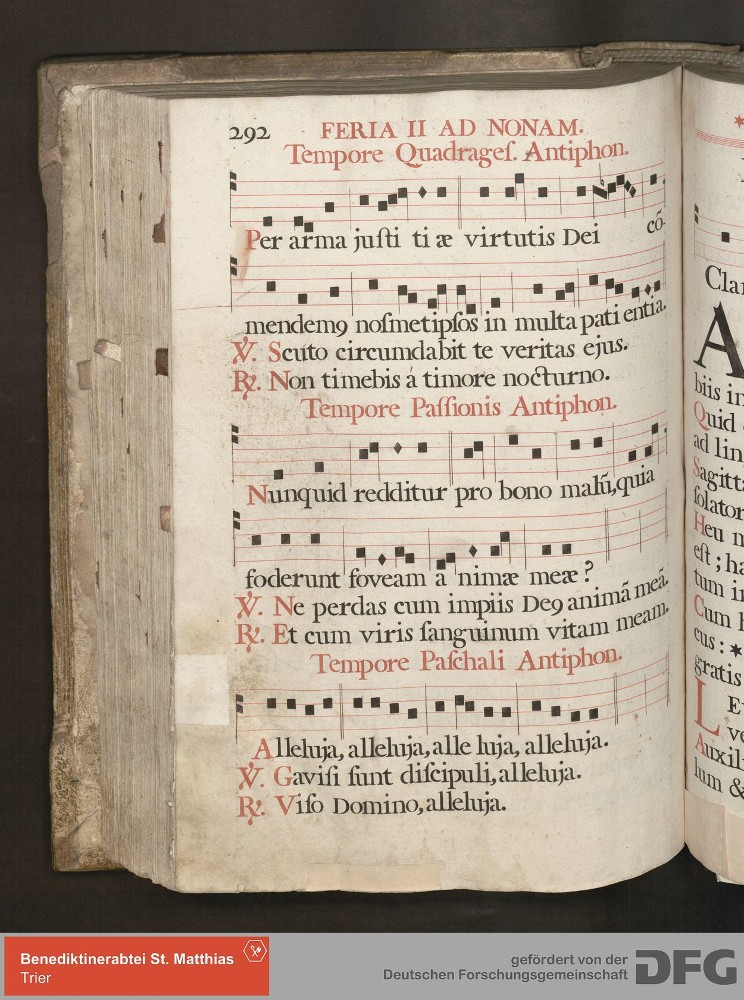 292 FERIA II AD NONAM.
Tempore Quadrageſ. Antiphon.
Per arma juſti ti æ virtutis Dei cō-
mendemꝯ noſmetipſos in multa pati entia.
℣. Scuto circumdabit te veritas ejus.
℟. Non timebis á timore nocturno.
Tempore Paſſionis Antiphon.
Nunquid redditur pro bono malũ, quia
foderunt foveam a nimæ meæ?
℣. Ne perdas cum impiis Deꝯ animã meã.
℟. Et cum viris ſanguinum vitam meam.
Tempore Paſchali Antiphon.
Alleluja, alleluja, alle luja, alleluja.
℣. Gaviſi ſunt diſcipuli, alleluja.
℟. Viſo Domino, alleluja.
Clar
A
biis in
Quid
ad lin
Sagitta
ſolator
Heu m
eſt; ha
tum in
Cum h
cus: *
gratis
L Et
ve
Auxil
lum &
Benediktinerabtei St. Matthias
Trier
gefördert von der
Deutschen Forschungsgemeinschaft
DFG